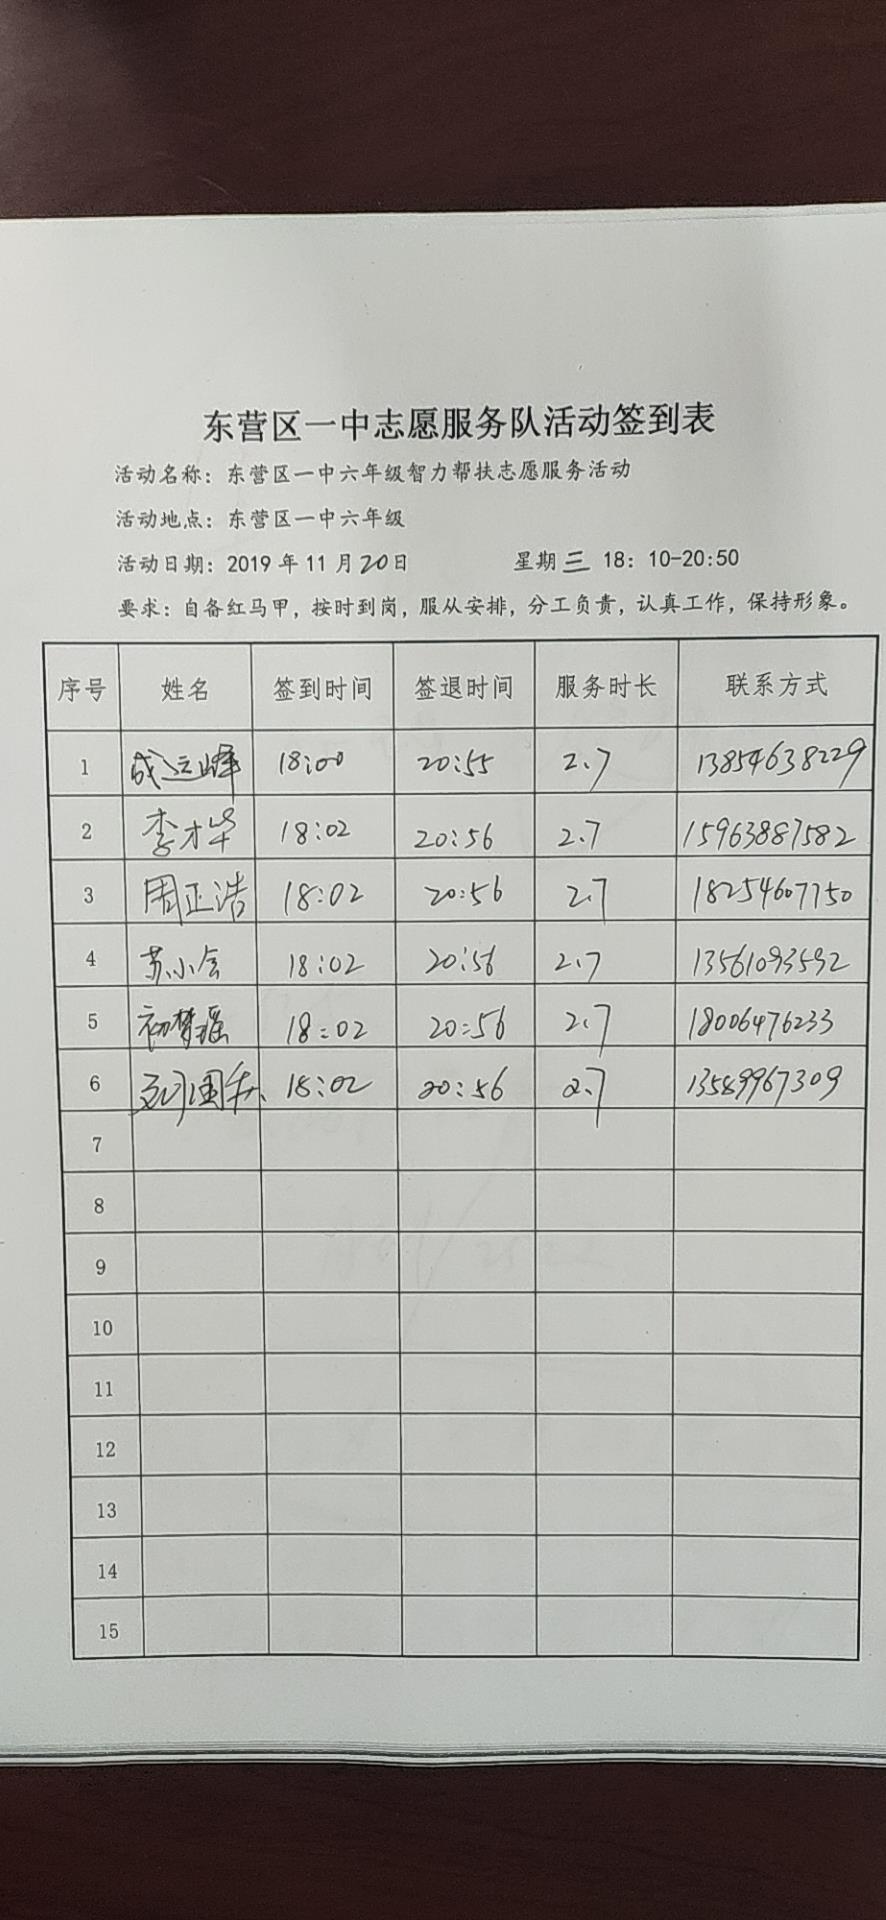 东营区一中志愿服务队活动签到表
活动名称：东营区一中六年级智力帮扶志愿服务活动
活动地点：东营区一中六年级
活动日期：2019 年 11 月 20 日 星期 三 18：10-20:50
要求：自备红马甲，按时到岗，服从安排，分工负责，认真工作，保持形象。
序号 姓名 签到时间 签退时间 服务时长 联系方式
1 成远峰 18:00 20:55 2.7 13854638229
2 李才华 18:02 20:56 2.7 15963887582
3 周正浩 18:02 20:56 2.7 18254607750
4 苏小会 18:02 20:56 2.7 13561093592
5 初梦瑶 18:02 20:56 2.7 18006476233
6 18:02 20:56 2.7 13589967309
7
8
9
10
11
12
13
14
15